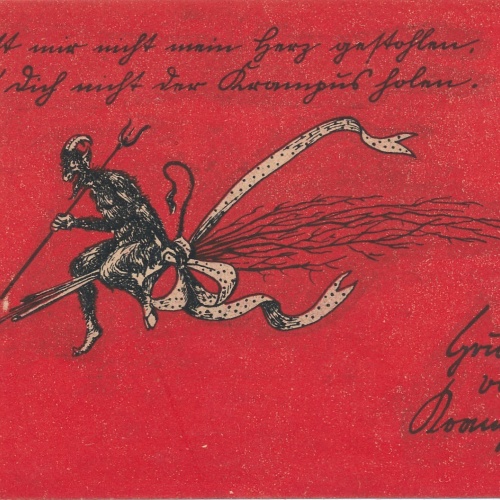 st mir nicht mein Herz gestohlen,
Dich nicht der Krampus holen.
Gru
v
Kram